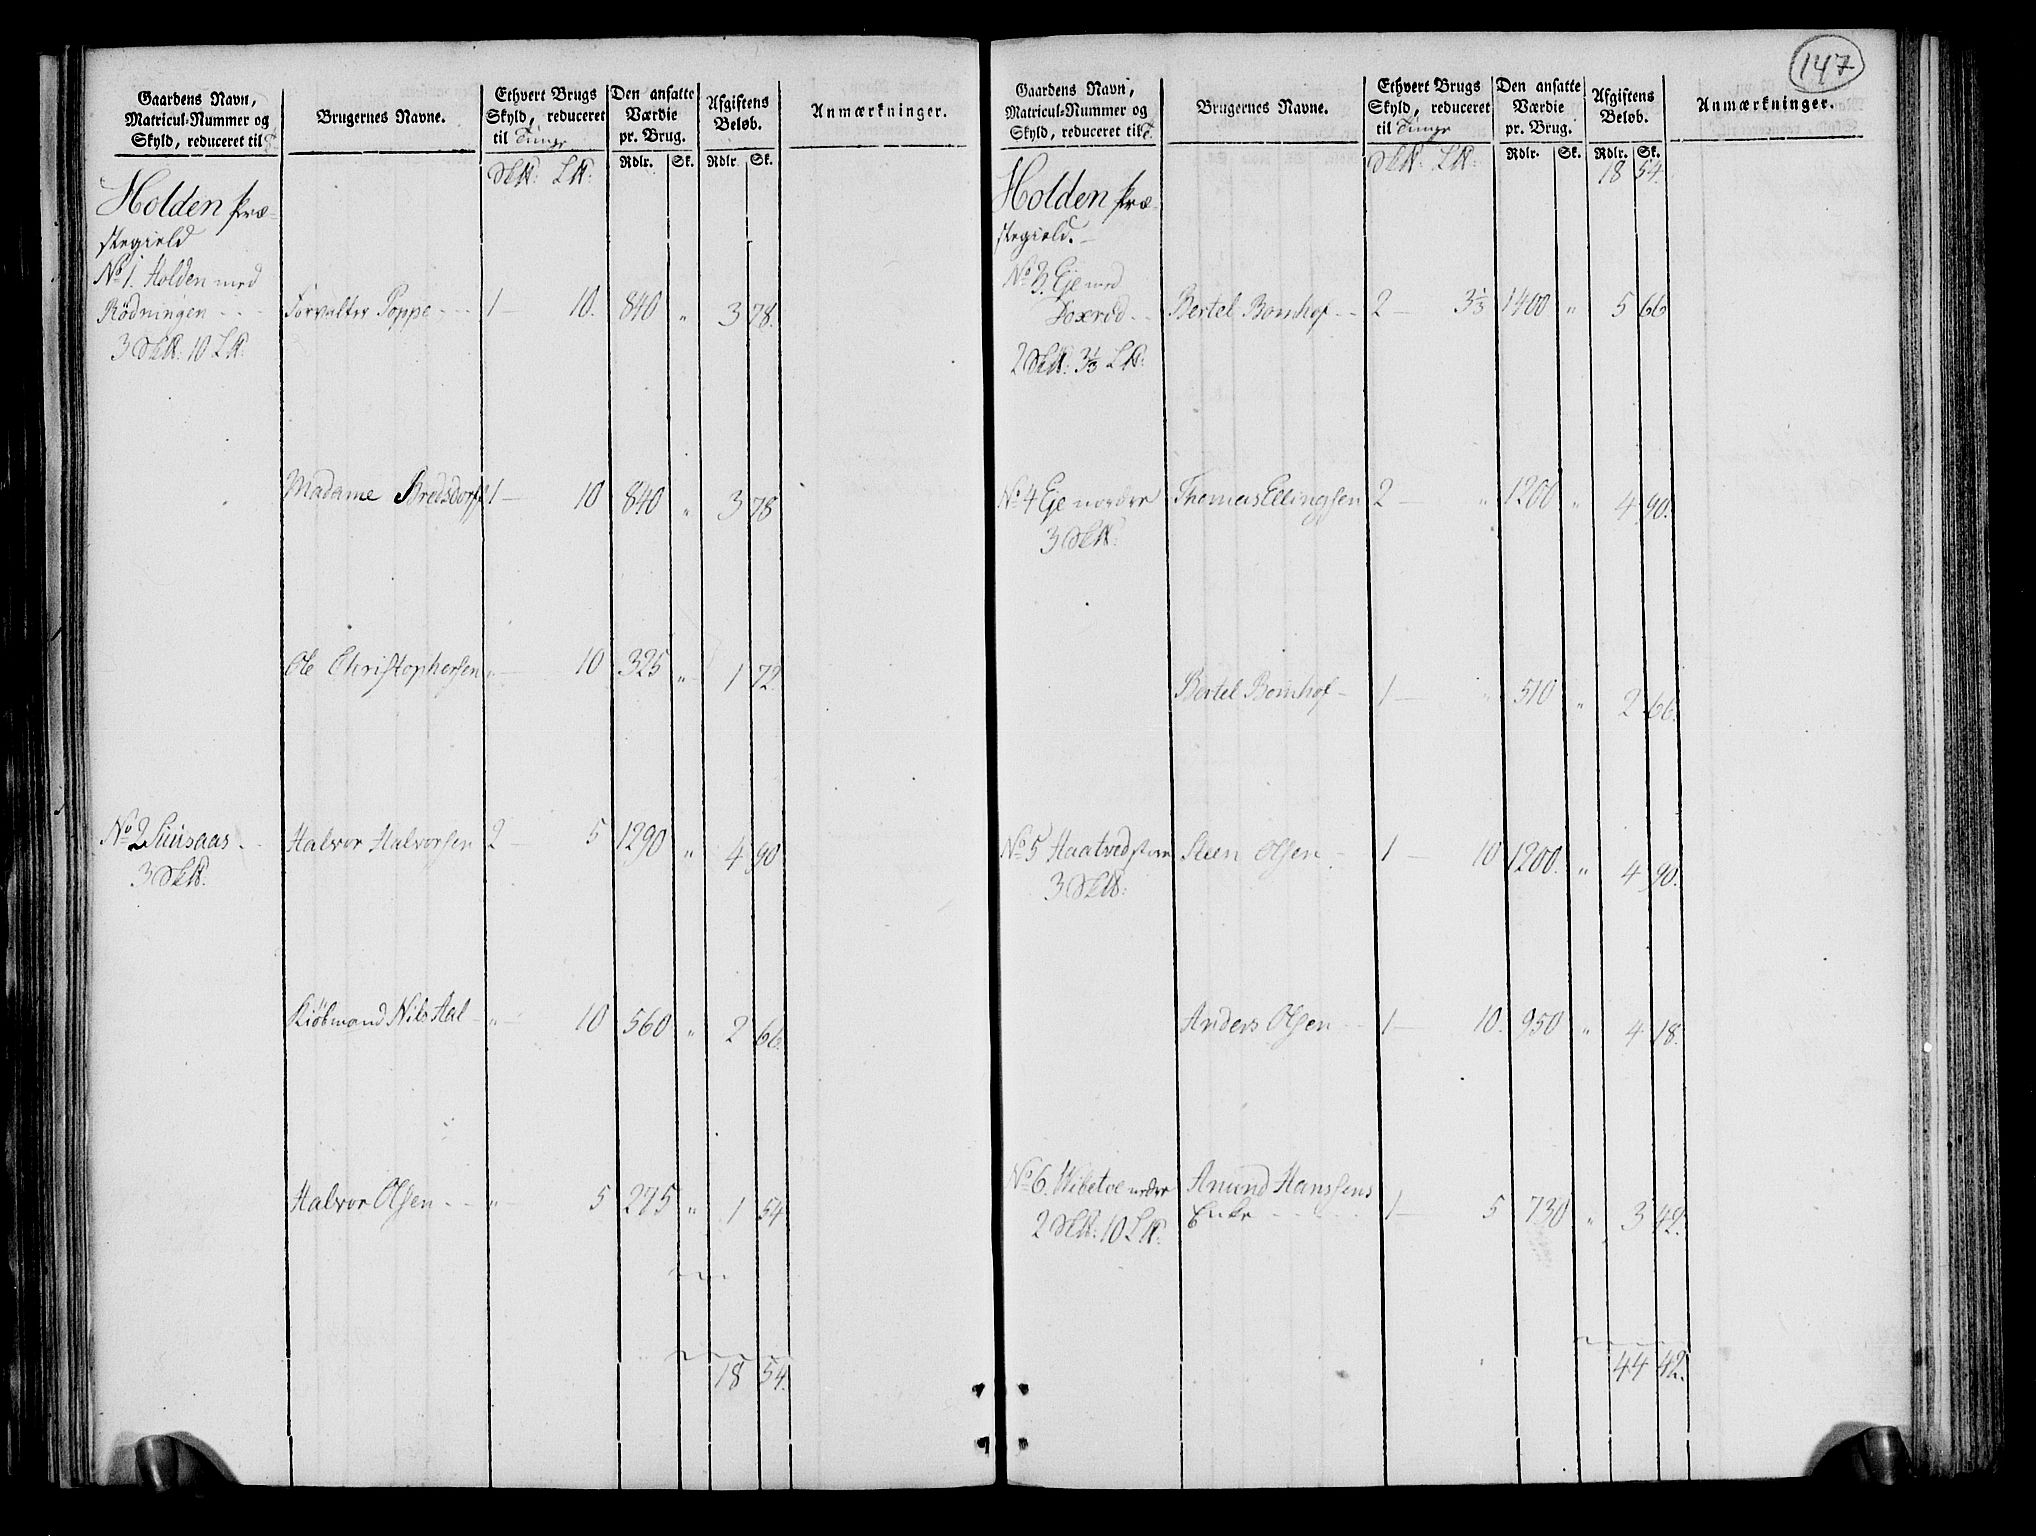 147
Gaardens Navn,
Matricul-Nummer og
Skyld, reduceret til
Brugernes Navne.
Ethvert Brugs
Skyld, reduceret
til Tunge
Den ansatte
Værdie
pr. Brug.
Afgiftens
Beløb.
Anmærkninger.
Rdlr. Sk. Rdlr. Sk.
Holden Præ-
stegield
No 1. Holden med
Rödningen - - Forvalter Poppe - - - 1 - 10. 840 " 3 78.
Madame Bredsdorff 1 - 10 840 " 3 78
Ole Christophersen " - 10 325 " 1 72.
No 2 Suusaas - Halvor Halvorsen 2 - 5 1290 " 4 90
Kiöbmand Nils Aal - " - 10 560 " 2 66.
Halvor Olsen - - " - 5 275 " 1 54
18 54.
Gaardens Navn,
Matricul-Nummer og
Skyld, reduceret til
Brugernes Navne.
Ethvert Brugs
Skyld, reduceret
til Tunge
Den ansatte
Værdie
pr. Brug.
Afgiftens
Beløb.
Anmærkninger.
Rdlr. Sk. Rdlr. Sk.
18 54.
Holden Præ-
stegield. -
No 3. Eje med
Bertel Bomhof - - 2 - 3 1/3 1400 " 5 66
No 4 Eje nordre Thomas Ellingsen 2 - " 1200 " 4 90.
Bertel Bomhof - 1 - " 510 " 2 66.
No 5 Haatved store Steen Olsen - 1 - 10 1200. " 4 90.
Anders Olsen - - 1 - 10. 950 " 4 18.
No 6. Wibetoe nedre Amund Hanssens
Enke - - - - 1 - 5 730 " 3 42.
44 42.